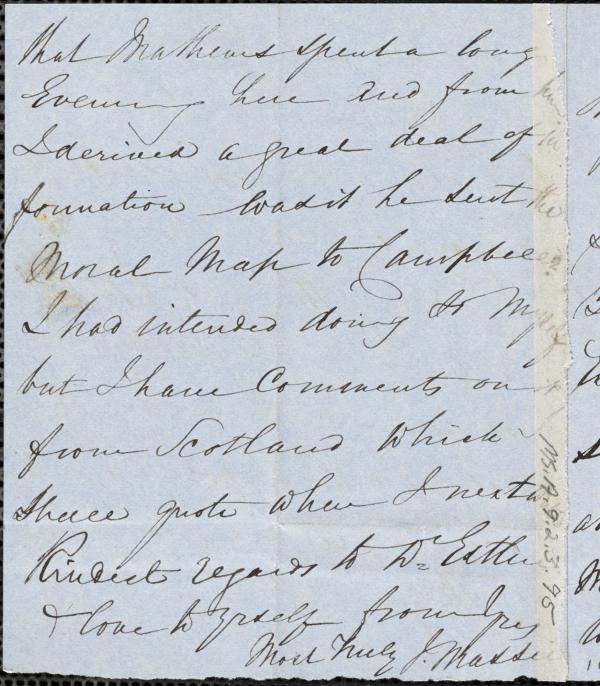 that Mathews spent a long
Evening here and from him
I derived a great deal of in
formation was it he sent the
Moral Map to Campbell?
I had intended doing so myself
but I have Comments on it
from Scotland which
shall quote when I next
Kindest regards to Dr Estlin
& love to yrself from
Most truly J.
Ms.A.9.2.5.95